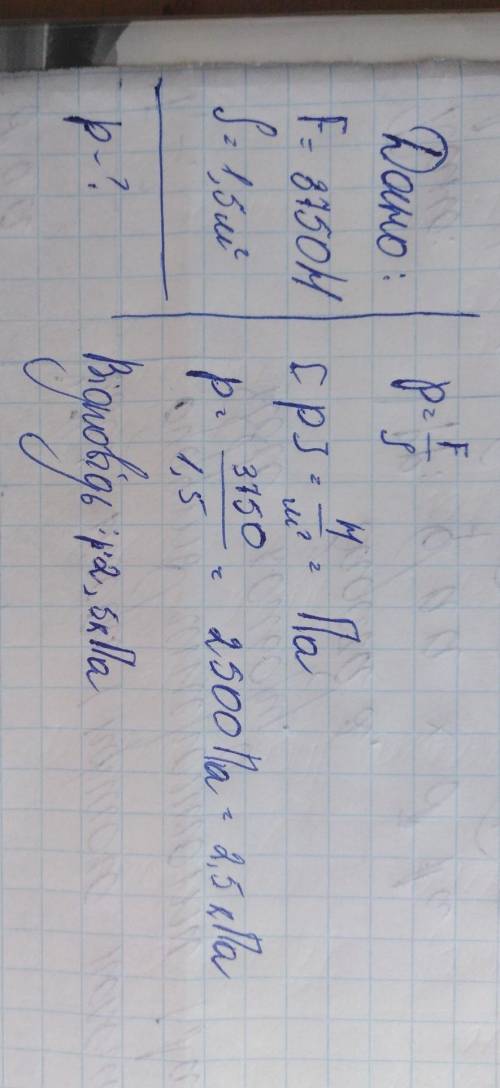 Дано:
F = 3750 Н
S = 1,5 м²
p - ?
p = F/S
[p] = Н/м² = Па
p = 3750/1,5 = 2500 Па = 2,5 кПа
Відповідь: p=2,5 кПа